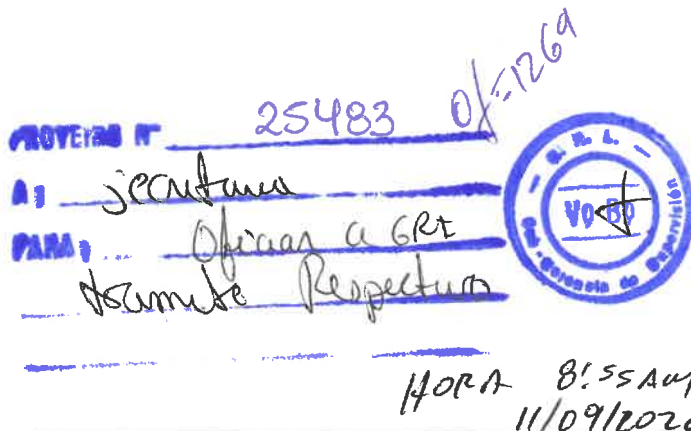 PROVEIDO N° 25483 Of=1269
A: secretaria
PARA: Oficiar a GRI
tramite Respectivo
G. R. I.
Vº Bº
Sub-Gerencia de Supervisión
HORA 8:55 Am
11/09/202